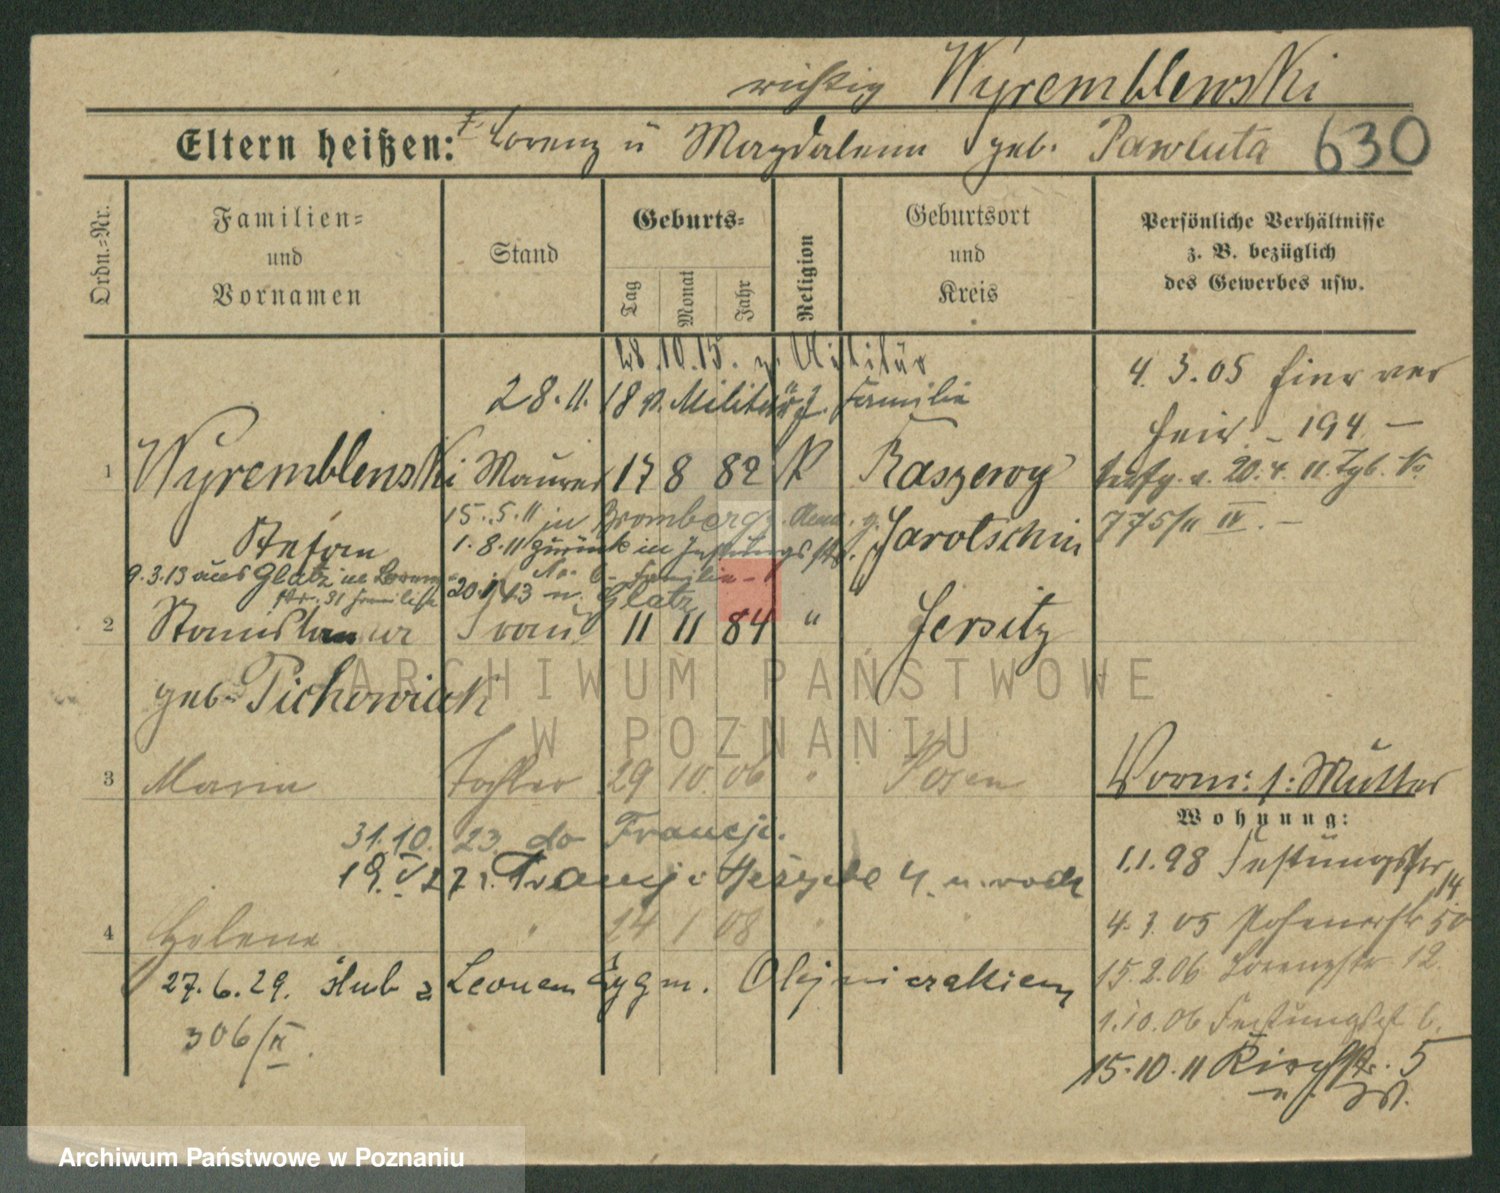 richtig Wyremblewski
Eltern heißen: Lorenz u Magdalena geb. Pawluta 630
Ordn.-Nr.
Familien-
und
Vornamen
Stand
Geburts-
Tag
Monat
Jahr
Religion
Geburtsort
und
Kreis
Persönliche Verhältnisse
z. B. bezüglich
des Gewerbes usw.
28.10.15. z. Militär
28.11.18 v. Militär z. Familie
4.3.05 hier ver
heir. – 194 –
1 Wyremblewski Maurer 17 8 82 K Raszewy
20.4.11 Tgb. No
775/11 IV. –
15.5.11 in Bromberg
Stefan
1.8.11 zurück in Festungsstr.
Jarotschin
No. 6 – Familie –
9.3.13 aus Glatz in Lorenz-
str. 31 Familie
20.1.13 n. Glatz
2 Stanislawa Frau 11 11 84 " Jersitz
geb. Pichowiak
3 Maria Tochter 29 10 06 " Posen
Vorm: s: Mutter
Wohnung:
31.10.23 do Francji.
1.1.98 Festungsstr 14
19.V 27 z Francji Herzele 4.
4 Helene " 24 1 08 " "
4.3.05 Posenerstr 50
27.6.29. ślub z Leonem Zygm. Olejniczakiem
15.2.06 Lorenzstr 12.
306/II.
1.10.06 Festungsst 6.
15.10.11 Kirchstr. 5
ARCHIWUM PAŃSTWOWE
W POZNANIU
Archiwum Państwowe w Poznaniu